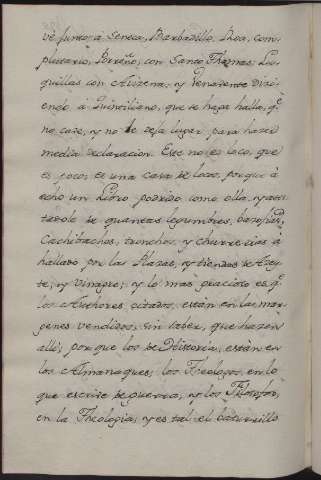 vè junto à Seneca, Barbadillo, Roa, Com-
plutario, Porreño, con Santo Thomas; Lu-
quillas con Avizena; y Benavente dizi-
endo à Quintiliano, que se haga hallà, q.e
no cave, y no le deja lugar para hazer
media declaracion. Este no es loco, que
es poco; es una casa de locos, porque à
echo un Libro podrido como olla, y ates-
tadole de quantas legumbres,
Cachibaches, tronchos, y churrerias à
hallado por las Plazas, y tiendas de Azey-
te, y Vinagre; y lo mas gracioso es q.e
los Authores citados, estàn en las mar-
genes vendidos, sin saber, que hazen
alli; por que los de Historia, estàn en
los Almanaques; los Theologos, en lo
que escrive de guerra, y los Filosofos,
en la Theologia; y es tal el baturrillo